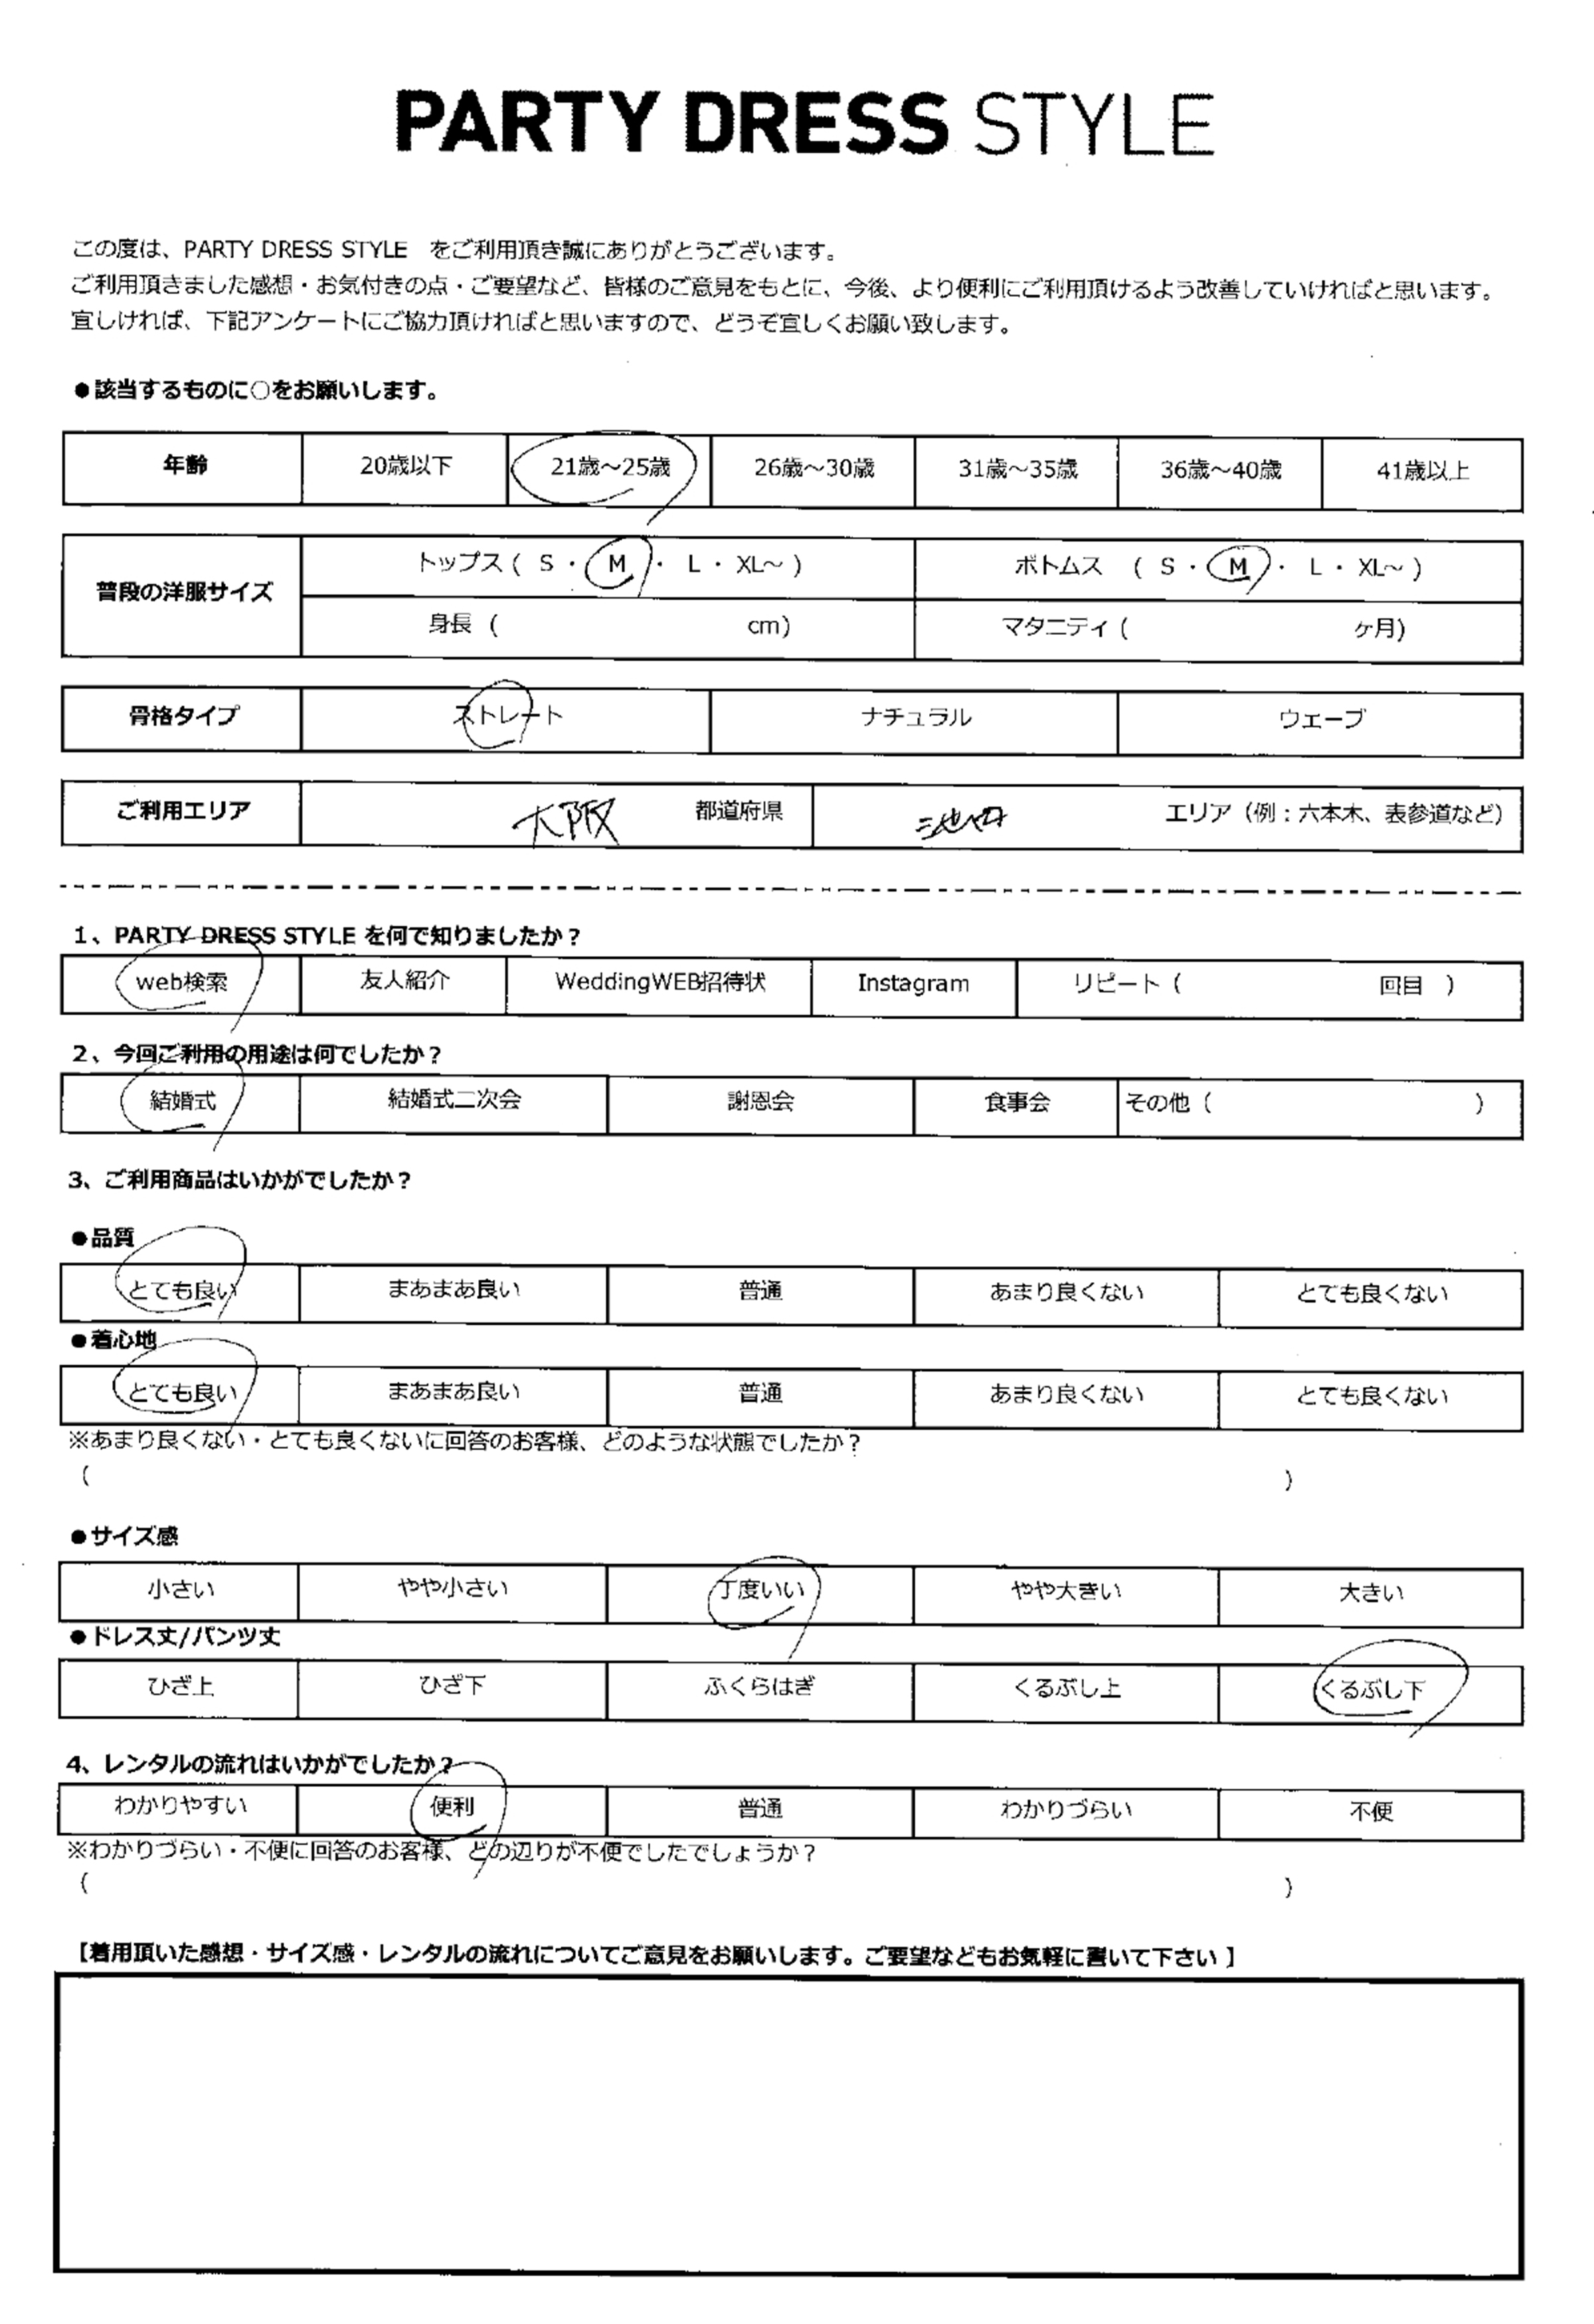 PARTY DRESS STYLE
この度は、PARTY DRESS STYLE　をご利用頂き誠にありがとうございます。
ご利用頂きました感想・お気付きの点・ご要望など、皆様のご意見をもとに、今後、より便利にご利用頂けるよう改善していければと思います。
宜しければ、下記アンケートにご協力頂ければと思いますので、どうぞ宜しくお願い致します。
●該当するものに○をお願いします。
年齢 20歳以下 21歳～25歳 26歳～30歳 31歳～35歳 36歳～40歳 41歳以上
普段の洋服サイズ
トップス ( S ・ M ・ L ・ XL～ ) ボトムス ( S ・ M ・ L ・ XL～ )
身長 ( cm) マタニティ ( ケ月)
骨格タイプ ストレート ナチュラル ウェーブ
ご利用エリア 大阪 都道府県 エリア（例：六本木、表参道など）
1、PARTY DRESS STYLE を何で知りましたか？
web検索 友人紹介 WeddingWEB招待状 Instagram リピート ( 回目 )
2、今回ご利用の用途は何でしたか？
結婚式 結婚式二次会 謝恩会 食事会 その他 ( )
3、ご利用商品はいかがでしたか？
●品質
とても良い まあまあ良い 普通 あまり良くない とても良くない
●着心地
とても良い まあまあ良い 普通 あまり良くない とても良くない
※あまり良くない・とても良くないに回答のお客様、どのような状態でしたか？
( )
●サイズ感
小さい やや小さい 丁度いい やや大きい 大きい
●ドレス丈/パンツ丈
ひざ上 ひざ下 ふくらはぎ くるぶし上 くるぶし下
4、レンタルの流れはいかがでしたか？
わかりやすい 便利 普通 わかりづらい 不便
※わかりづらい・不便に回答のお客様、どの辺りが不便でしたでしょうか？
( )
【着用頂いた感想・サイズ感・レンタルの流れについてご意見をお願いします。ご要望などもお気軽に書いて下さい 】